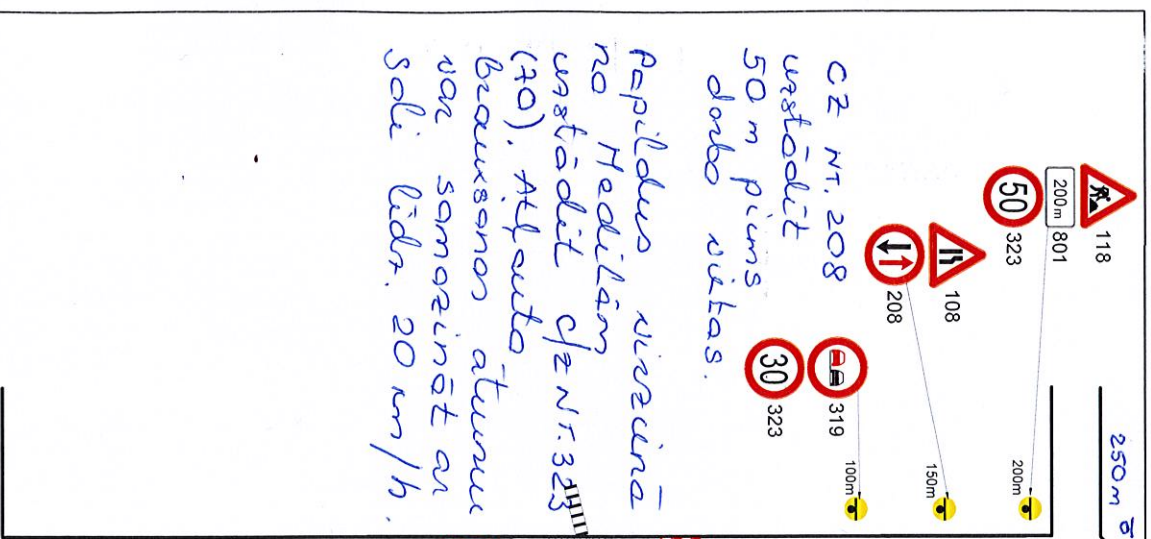 250m
118
200m 801
50 323
108
208
319
30 323
200m
150m
100m
CZ NT. 208
uzstādīt
50 m pirms
darba vietas.
Papildus virzienā
no Medilām
uzstādīt c/z NT. 323
(70). Atļauto
braukšanas ātrumu
var samazināt ar
soli līdz. 20 km/h.